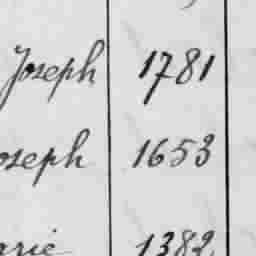 Joseph 1781
oseph 1653
arie 1382